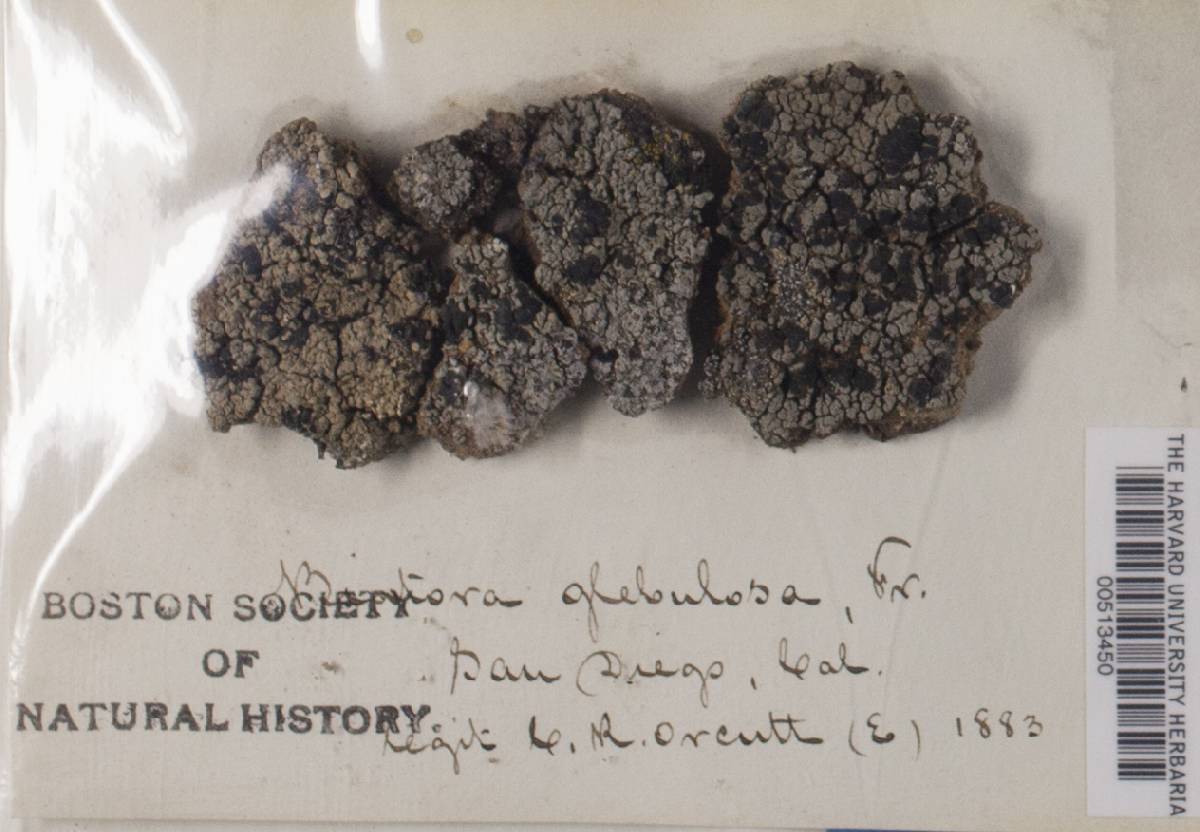 glebulosa, Fr.
BOSTON SOCIETY
OF
NATURAL HISTORY.
San Diego, Cal.
Legit C. R. Orcutt (E) 1883
THE HARVARD UNIVERSITY HERBARIA
00513450